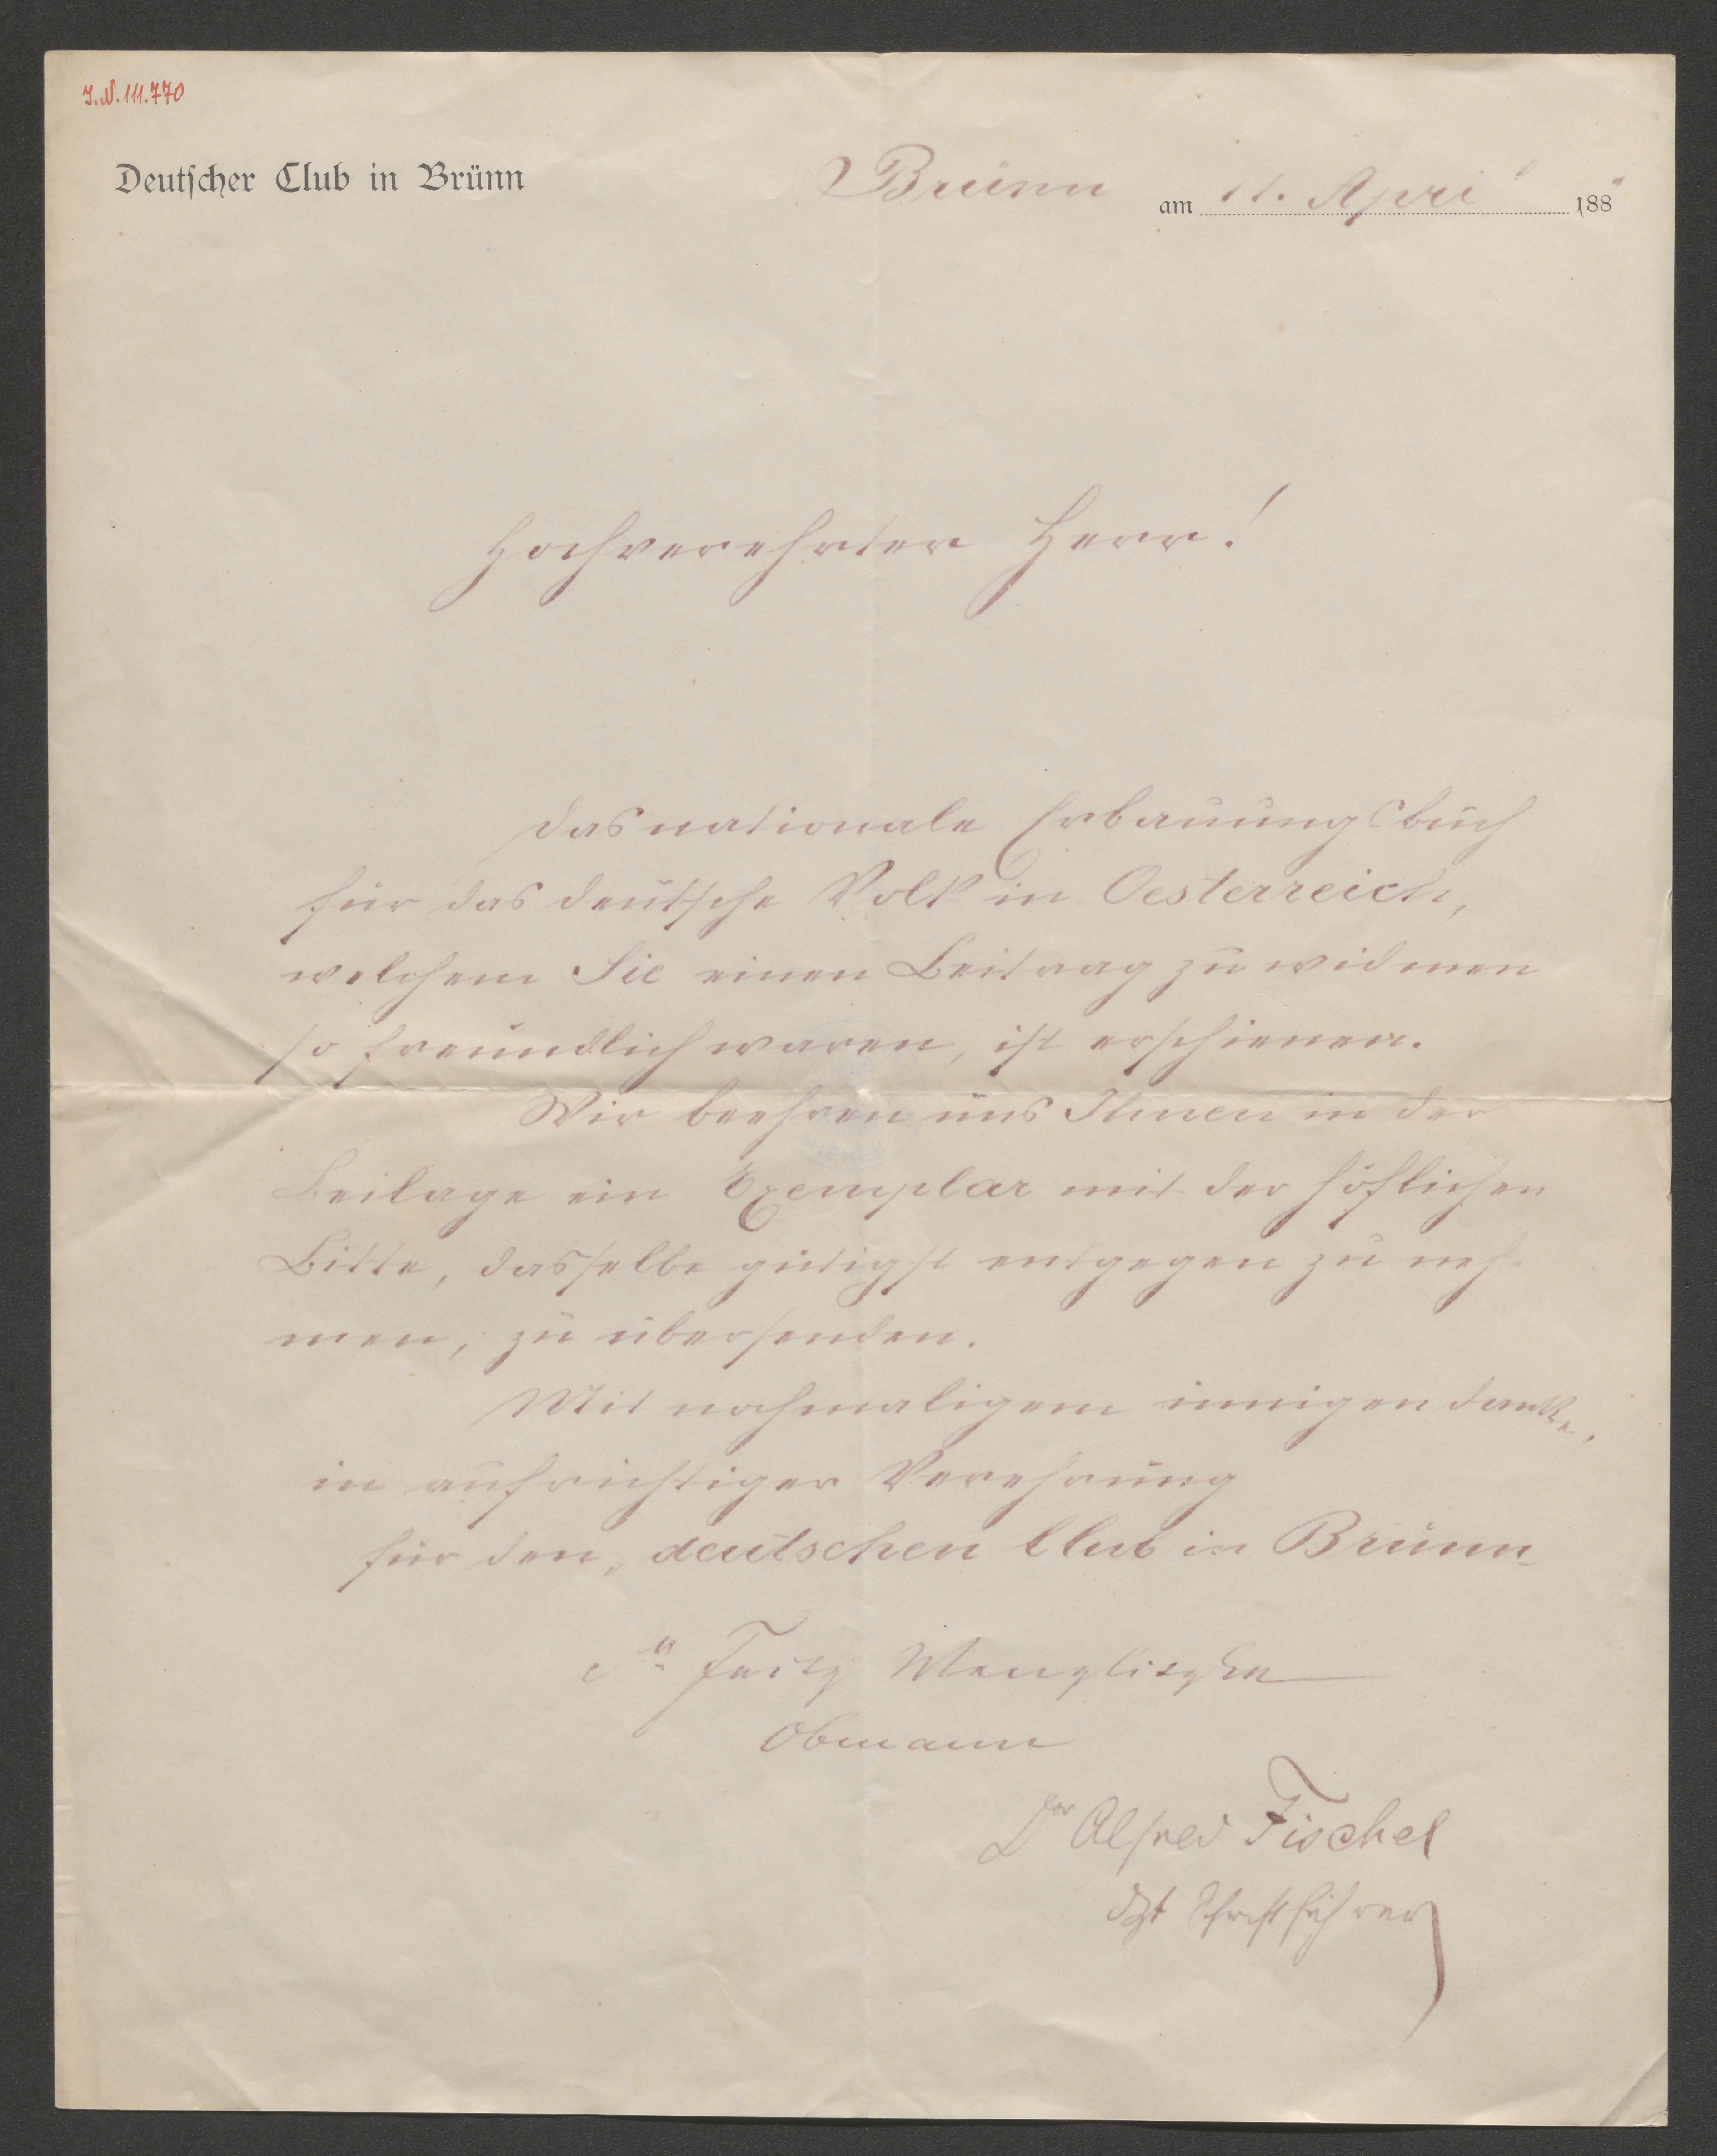 I.N. 111.770
Deutscher Club in Brünn
Brünn am 11. April 188
Hochverehrter Herr!
das nationale Erbauungsbuch
für das deutsche Volk in Oesterreich,
welchem Sie einen Beitrag zu widmen
so freundlich waren, ist erschienen.
Wir beehren uns Ihnen in der
Beilage ein Exemplar mit der höflichen
Bitte, dasselbe gütigst entgegen zu neh-
men, zu übersenden.
Mit nochmaligem innigen Danke,
in aufrichtiger Verehrung
für den „deutschen Club in Brünn
Fritz
Obmann
Dor Alfred Fischel
dzt Schriftführer